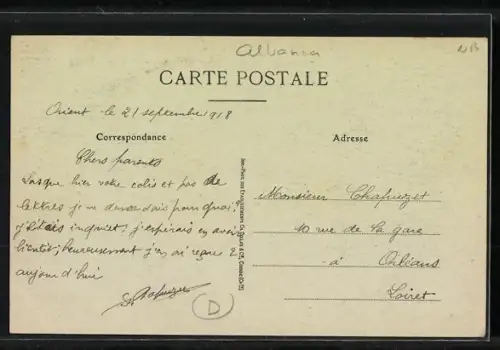 Albania
CARTE POSTALE
Orient le 21 septembre 1918
Correspondance
Adresse
Chers parents
hier votre colis et pas de
lettres je me demandais pourquoi;
j'étais inquiet; j'espérais en avoir
bientôt; heureusement j'en ai reçue 2
aujourd'hui
Chapuzet
D
Monsieur Chapuzet
10 rue de la gare
à Orléans
Loiret